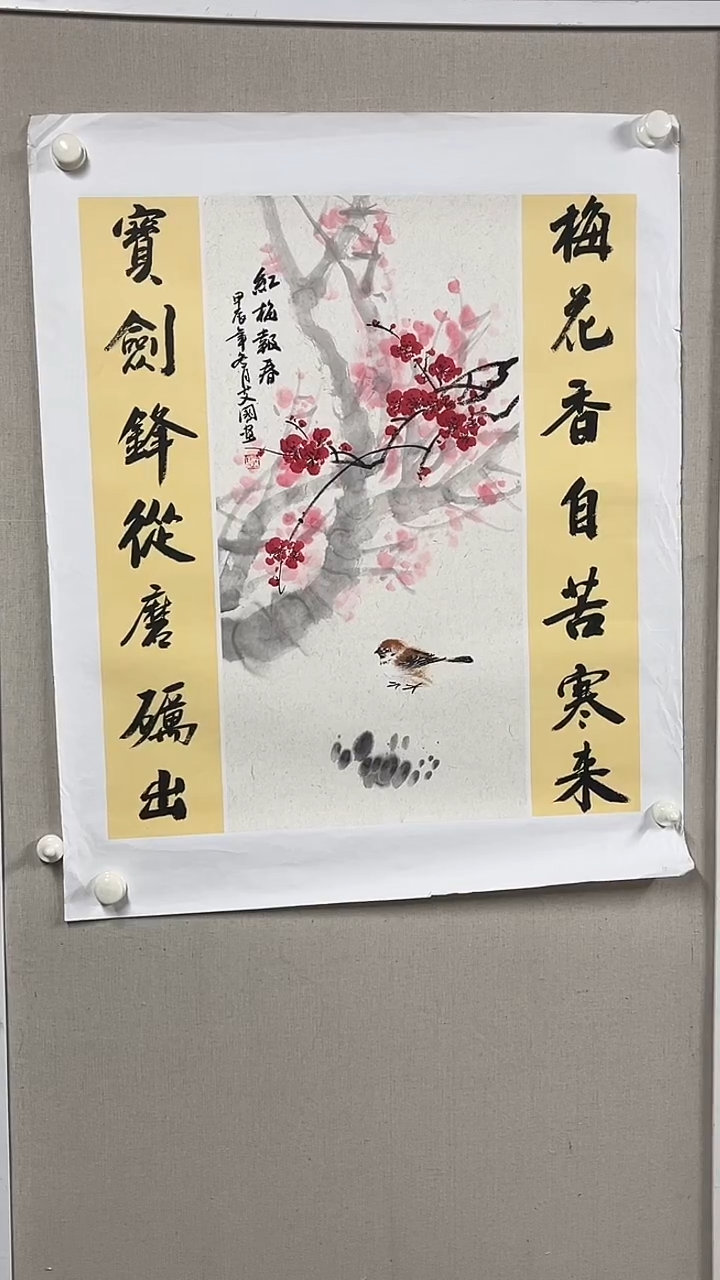 梅花香自苦寒来
寶劍鋒從磨礪出
紅梅報春
甲辰年冬月文國畫